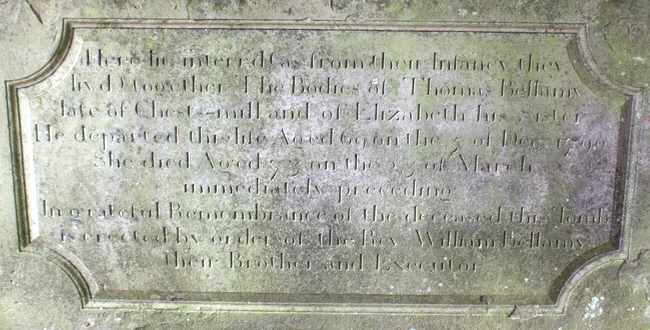 Here lie interr'd (as from their Infancy they
liv'd) together The Bodies of Thomas Bellamy
late of Chests-mill and of Elizabeth his sister
He departed this life Aged 69 on the 5 of Decr 1790
She died Aged 73 on the 23 of March
immediately preceding
In grateful Remembrance of the deceased this Tomb
is erected by order of the Rev. William Bellamy
their Brother and Executor